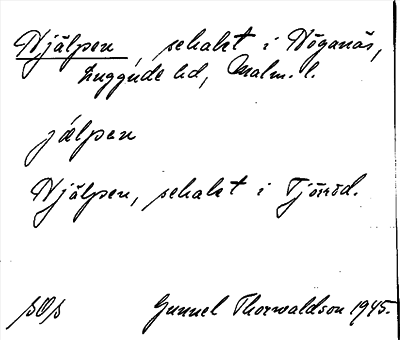 Hjälpen, schakt i Höganäs,
Luggude hd, Malm. l.
jálpen
Hjälpen, schakt i Tjörröd.
sOs Gunnel Thorwaldson 1945.